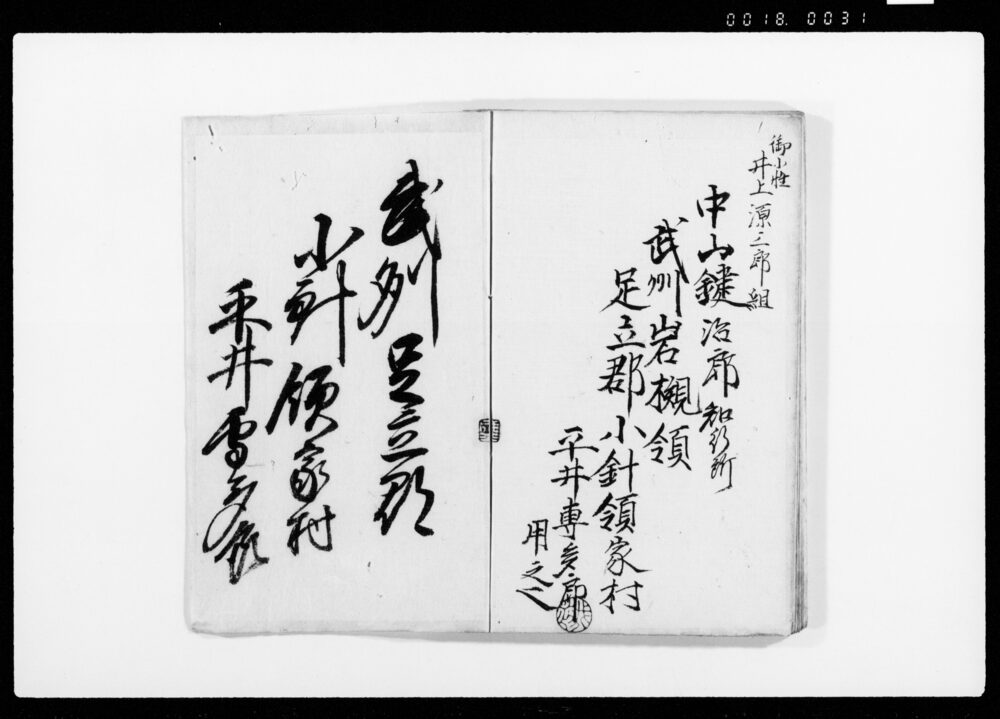 0018. 0031
御小性
井上源三郎組
中山鍵治郎知行所
武州岩槻領
足立郡小針領家村
平井専多郎
用之
武列足立郡
小針領家村
平井専多郎